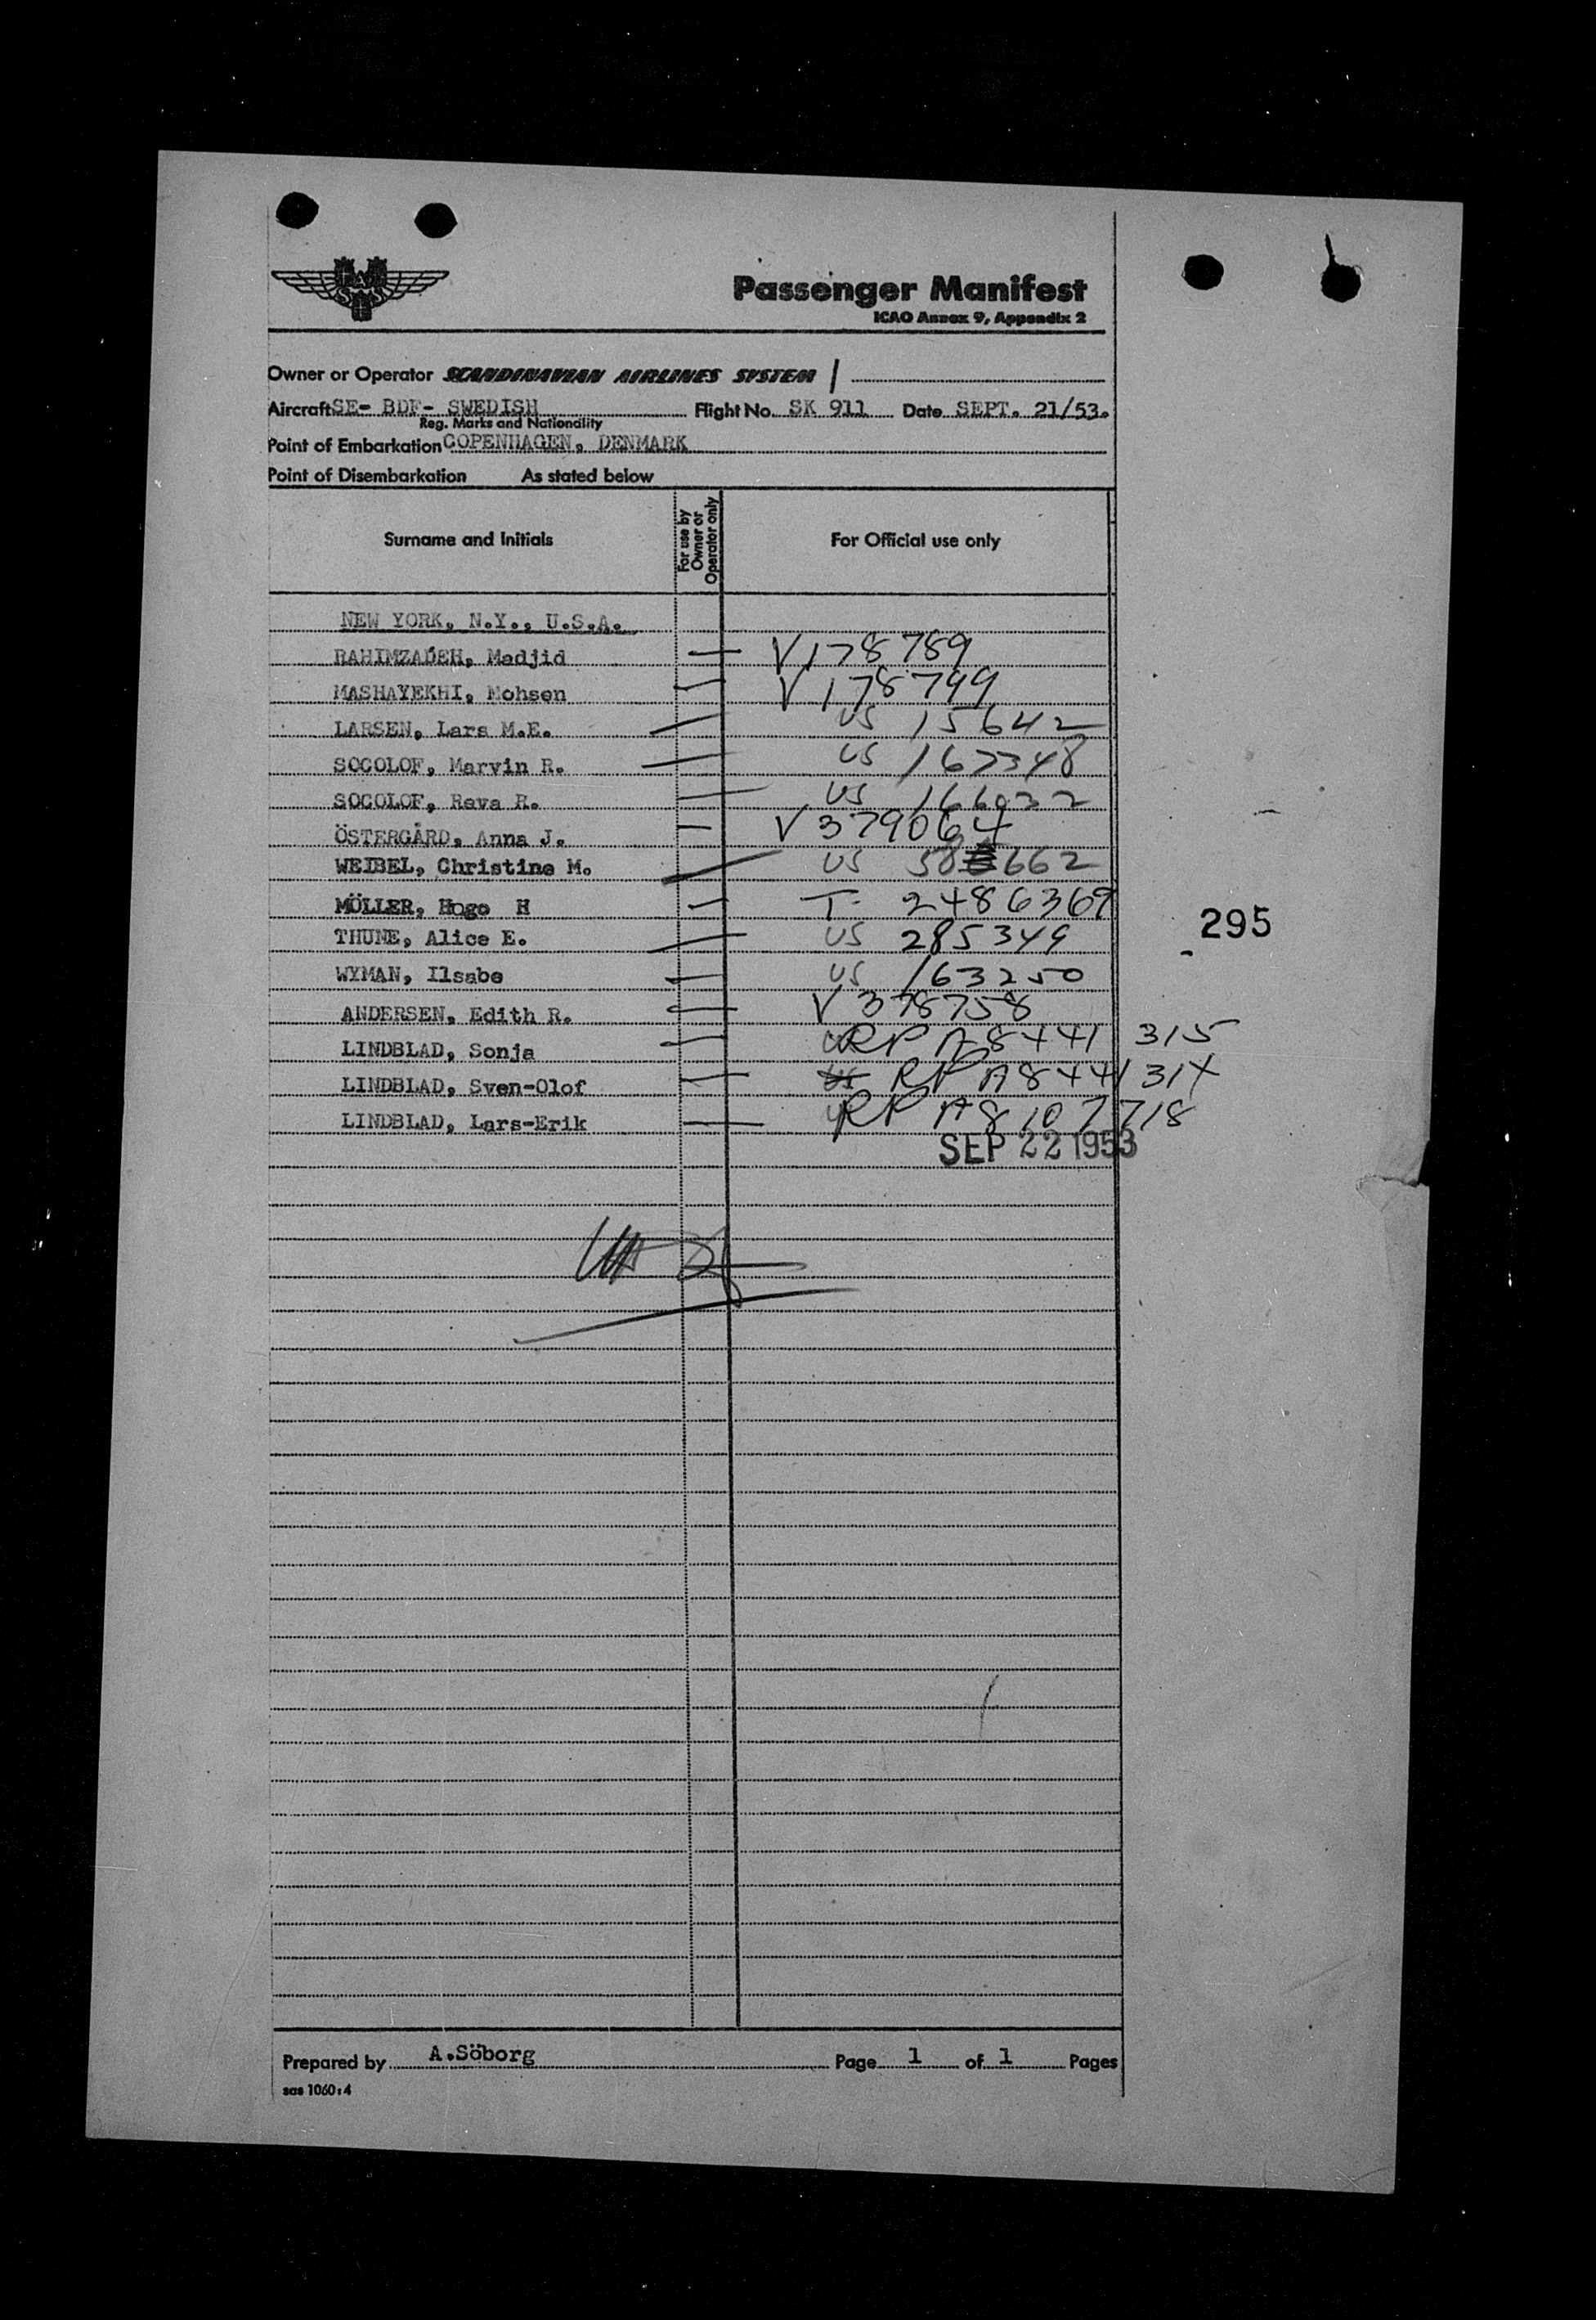 SAS
Passenger Manifest
ICAO Annex 9, Appendix 2
Owner or Operator SCANDINAVIAN AIRLINES SYSTEM
Aircraft SE- BDF- SWEDISH Flight No. SK 911 Date SEPT. 21/53.
Reg. Marks and Nationality
Point of Embarkation COPENHAGEN, DENMARK
Point of Disembarkation As stated below
Surname and Initials For use by Owner or Operator only For Official use only
NEW YORK, N.Y., U.S.A.
RAHIMZADEH, Madjid — V 178789
MASHAYEKHI, Mohsen — V 178799
LARSEN, Lars M.E. — US 15642
SOCOLOF, Marvin R. — US 167348
SOCOLOF, Reva R. — US 166032
ÖSTERGÅRD, Anna J. — V 379064
WEIBEL, Christine M. — US 662
MÖLLER, Hogo H — T- 2486369
THUNE, Alice E. — US 285349
295
WYMAN, Ilsabe — US 163250
ANDERSEN, Edith R. — V 378758
LINDBLAD, Sonja — RP A8441 315
LINDBLAD, Sven-Olof — US RP A8441 314
LINDBLAD, Lars-Erik — RP A8107718
SEP 22 1953
Prepared by A.Söborg Page 1 of 1 Pages
sas 1060:4